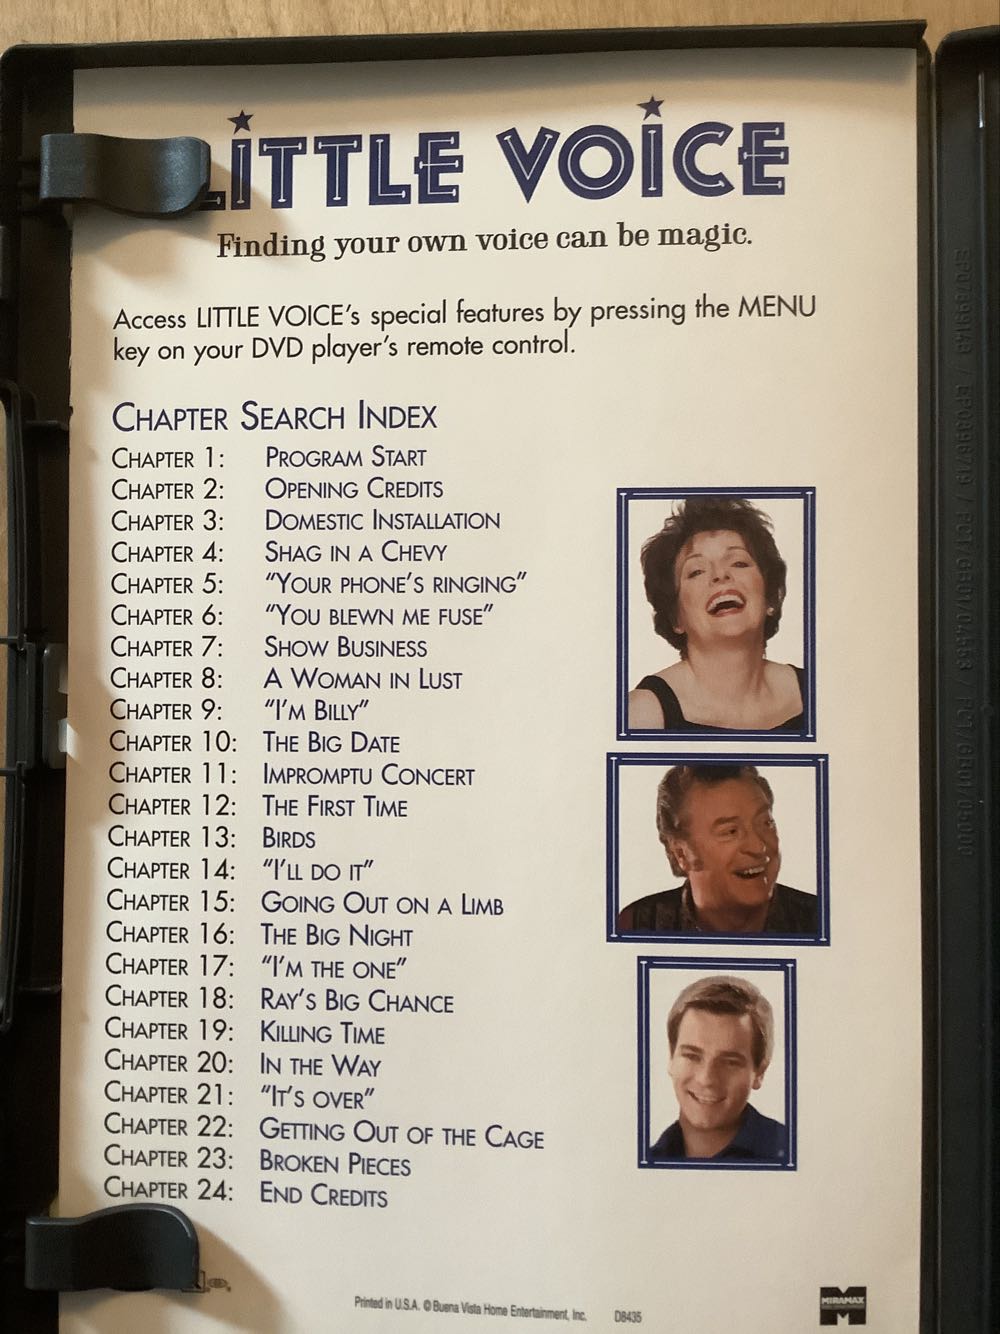 LITTLE VOICE
Finding your own voice can be magic.
Access LITTLE VOICE's special features by pressing the MENU
key on your DVD player's remote control.
CHAPTER SEARCH INDEX
CHAPTER 1: PROGRAM START
CHAPTER 2: OPENING CREDITS
CHAPTER 3: DOMESTIC INSTALLATION
CHAPTER 4: SHAG IN A CHEVY
CHAPTER 5: "YOUR PHONE'S RINGING"
CHAPTER 6: "YOU BLEWN ME FUSE"
CHAPTER 7: SHOW BUSINESS
CHAPTER 8: A WOMAN IN LUST
CHAPTER 9: "I'M BILLY"
CHAPTER 10: THE BIG DATE
CHAPTER 11: IMPROMPTU CONCERT
CHAPTER 12: THE FIRST TIME
CHAPTER 13: BIRDS
CHAPTER 14: "I'LL DO IT"
CHAPTER 15: GOING OUT ON A LIMB
CHAPTER 16: THE BIG NIGHT
CHAPTER 17: "I'M THE ONE"
CHAPTER 18: RAY'S BIG CHANCE
CHAPTER 19: KILLING TIME
CHAPTER 20: IN THE WAY
CHAPTER 21: "IT'S OVER"
CHAPTER 22: GETTING OUT OF THE CAGE
CHAPTER 23: BROKEN PIECES
CHAPTER 24: END CREDITS
Printed in U.S.A. © Buena Vista Home Entertainment, Inc. D8435
MIRAMAX